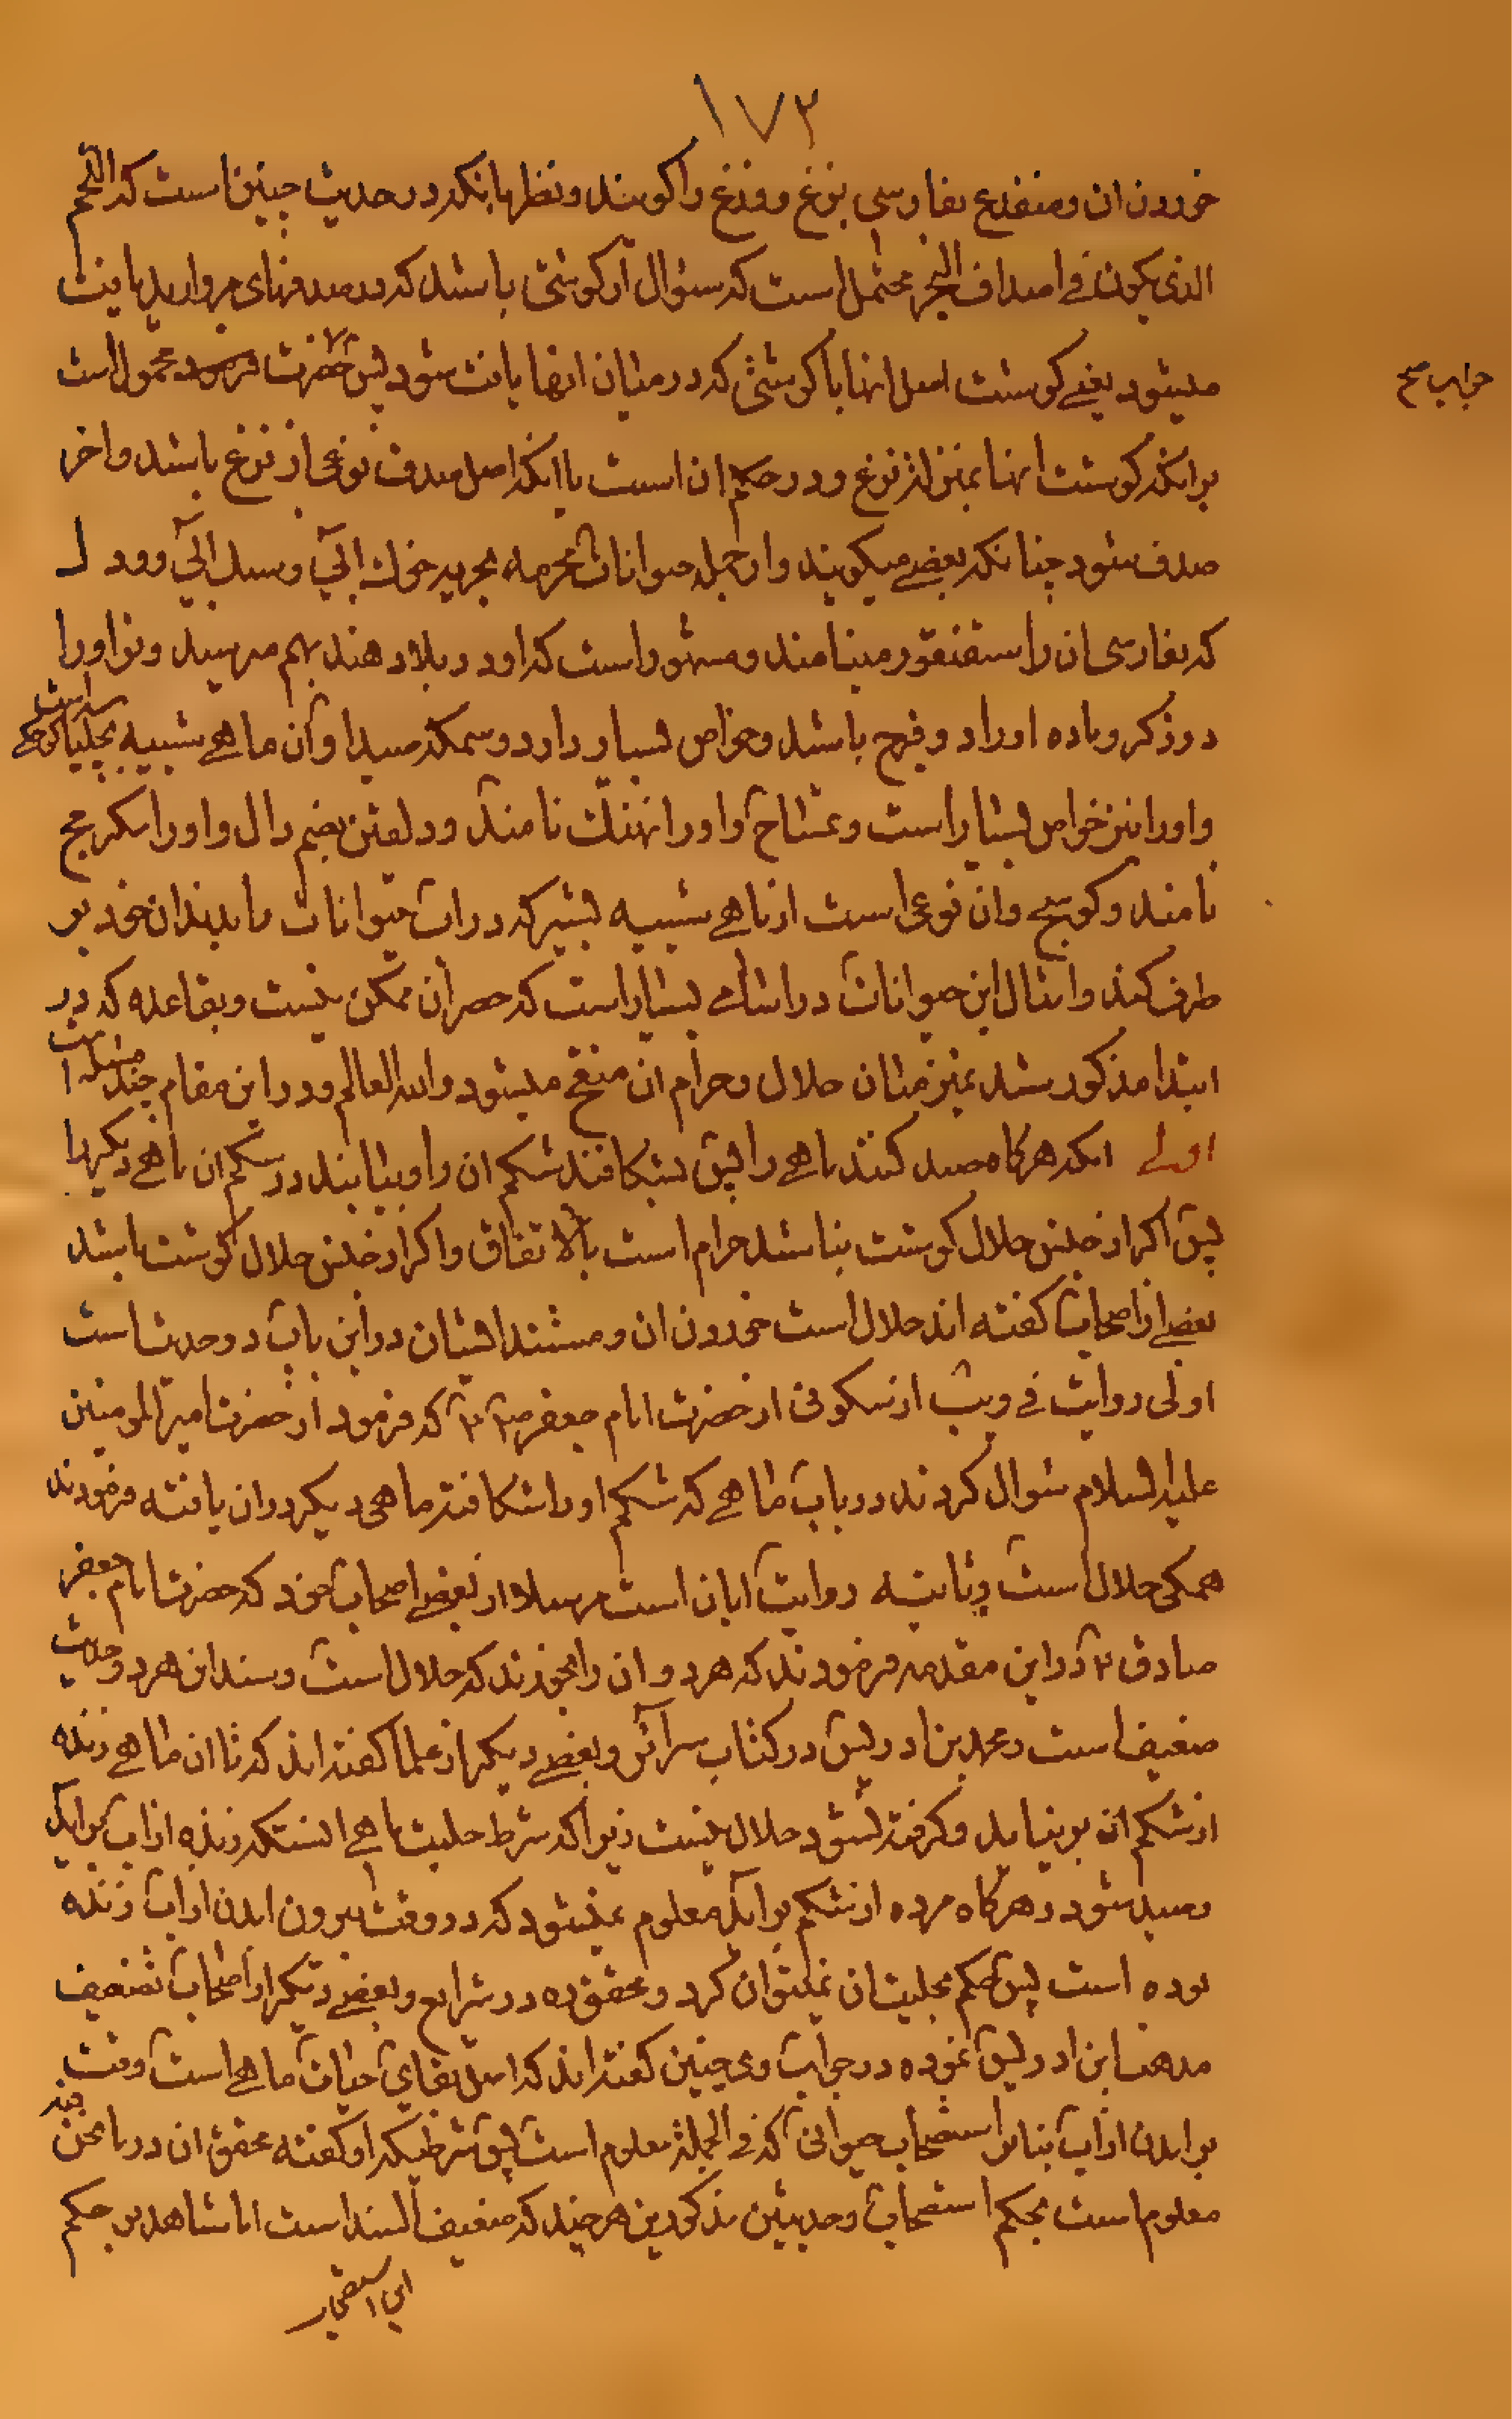 ١٧٣
خوردن ان و ضفدع بفارسی بزغ و وزغ را کویند و نظر بانکه در حدیث چنین است که اللحم
الذی یکون فی اصداف البحر محتمل است که سئوال از کوشتی باشد که در صدفهای مروارید یافت
میشود یعنی کوشت اصل انها یا کوشتی که در میان انها یافت شود پس حضرت فرمود محمول است
جواب صح
بر انکه کوشت انها بمنزله وزغ و در حکم ان است یا انکه اصل صدف نوعی از وزغ باشد و اخر
صدف شود چنانکه بعضی میکویند و از جمله حیوانات محرمه بحریه خوك ابی و سك ابی و ورل
که بفارسی ان را سقنقور مینامند و مشهور است که او در بلاد هند بهم میرسد و نر او را
دو ذکر و ماده او را دو فرج باشد و خواص بسیار دارد و سمکه صیدا و آن ماهی شبیه بچلپاسه کوچکی است
و او را نیز خواص بسیار است و تمساح و او را نهنك نامند و دلفین بضم دال و او را سکر مج
نامند و کوسج و ان نوعی است از ماهی شبیه بشیر که در اب حیوانات را بدندان خود بر
طرف کند و امثال این حیوانات در اسامی بسیار است که حصر ان ممکن نیست و بقاعده که در
ابتدا مذکور شد تمیز میان حلال و حرام ان منقح میشود والله العالم و در این مقام چند مسئله است
اولی انکه هرکاه صید کنند ماهی را پس بشکافند شکم ان را و بیابند در شکم ان ماهی دیکر را
پس اکر از جنس حلال کوشت نباشد حرام است بالاتفاق و اکر از جنس حلال کوشت باشد
بعضی از اصحاب کفته اند حلال است خوردن ان و مستند ایشان در این باب دو حدیث است
اولی روایت فی ویب از سکونی از حضرت امام جعفر ص ع که فرمود از حضرت امیر المومنین
علیه السلام سئوال کردند در باب ماهی که شکم او را شکافته ماهی دیکر در ان یافته فرمودند
همکی حلال است و ثانیه روایت ابان است مرسلا از بعضی اصحاب خود که حضرت امام جعفر
صادق ع در این مقدمه فرمودند که هر دو ان را بخورند که حلال است و سند این هر دو حدیث
ضعیف است و محمد بن ادریس در کتاب سرائر و بعضی دیکر از علما کفته اند که تا ان ماهی زنده
از شکم ان بر نیاید و کرفته نشود حلال نیست زیرا که شرط حلیت ماهی انستکه زنده از اب براید
و صید شود و هرکاه مرده از شکم براید معلوم نمیشود که در وقت بیرون امدن از اب زنده
بوده است پس حکم بحلیت ان نمیتوان کرد و محقق ره در شرایع و بعضی دیکر از اصحاب تضعیف
مذهب ابن ادریس نموده در جواب وی چنین کفته اند که اصل بقای حیات ماهی است وقت
بر امدن از اب بنا بر استصحاب حیوتی که فی الجمله معلوم است پس شرطیکه او کفته محقق ان در ما نحن فیه
معلوم است بحکم استصحاب و حدیثین مذکورین هر چند که ضعیف السند است اما شاهد بر حکم
این استصحاب